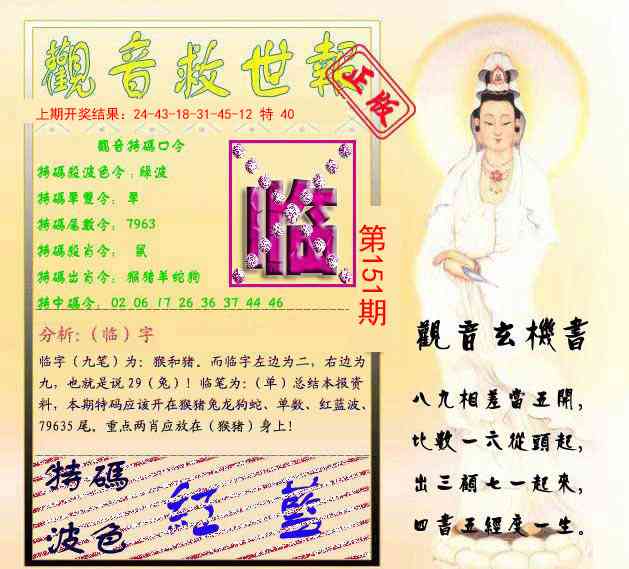 觀音救世報
正版
上期开奖结果：24-43-18-31-45-12 特 40
觀音特碼口令
特碼殺波色令：綠波
特碼單雙令： 單
特碼尾數令： 7963
特碼殺肖令： 鼠
特碼出肖令： 猴猪羊蛇狗
特中碼令： 02 06 17 26 36 37 44 46
临
第151期
分析：（临）字
临字（九笔）为：猴和猪。而临字左边为二，右边为
九，也就是说 29（兔）！临笔为：（单）总结本报资
料，本期特码应该开在猴猪兔龙狗蛇、单数、红蓝波、
79635 尾。重点两肖应放在（猴猪）身上！
特碼
波色
紅 藍
觀音玄機書
八九相差當五開，
比數一六從頭起，
出三顧七一起來，
四書五經度一生。